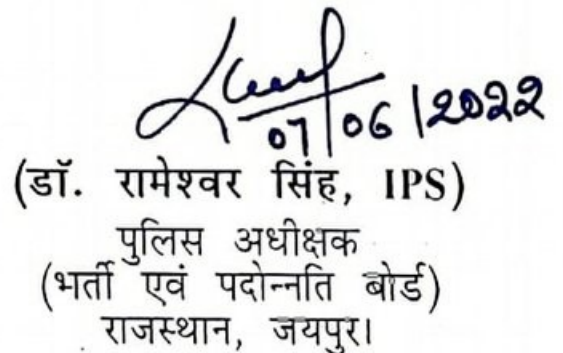 07/06/2022
(डॉ. रामेश्वर सिंह, IPS)
पुलिस अधीक्षक
(भर्ती एवं पदोन्नति बोर्ड)
राजस्थान, जयपुर।